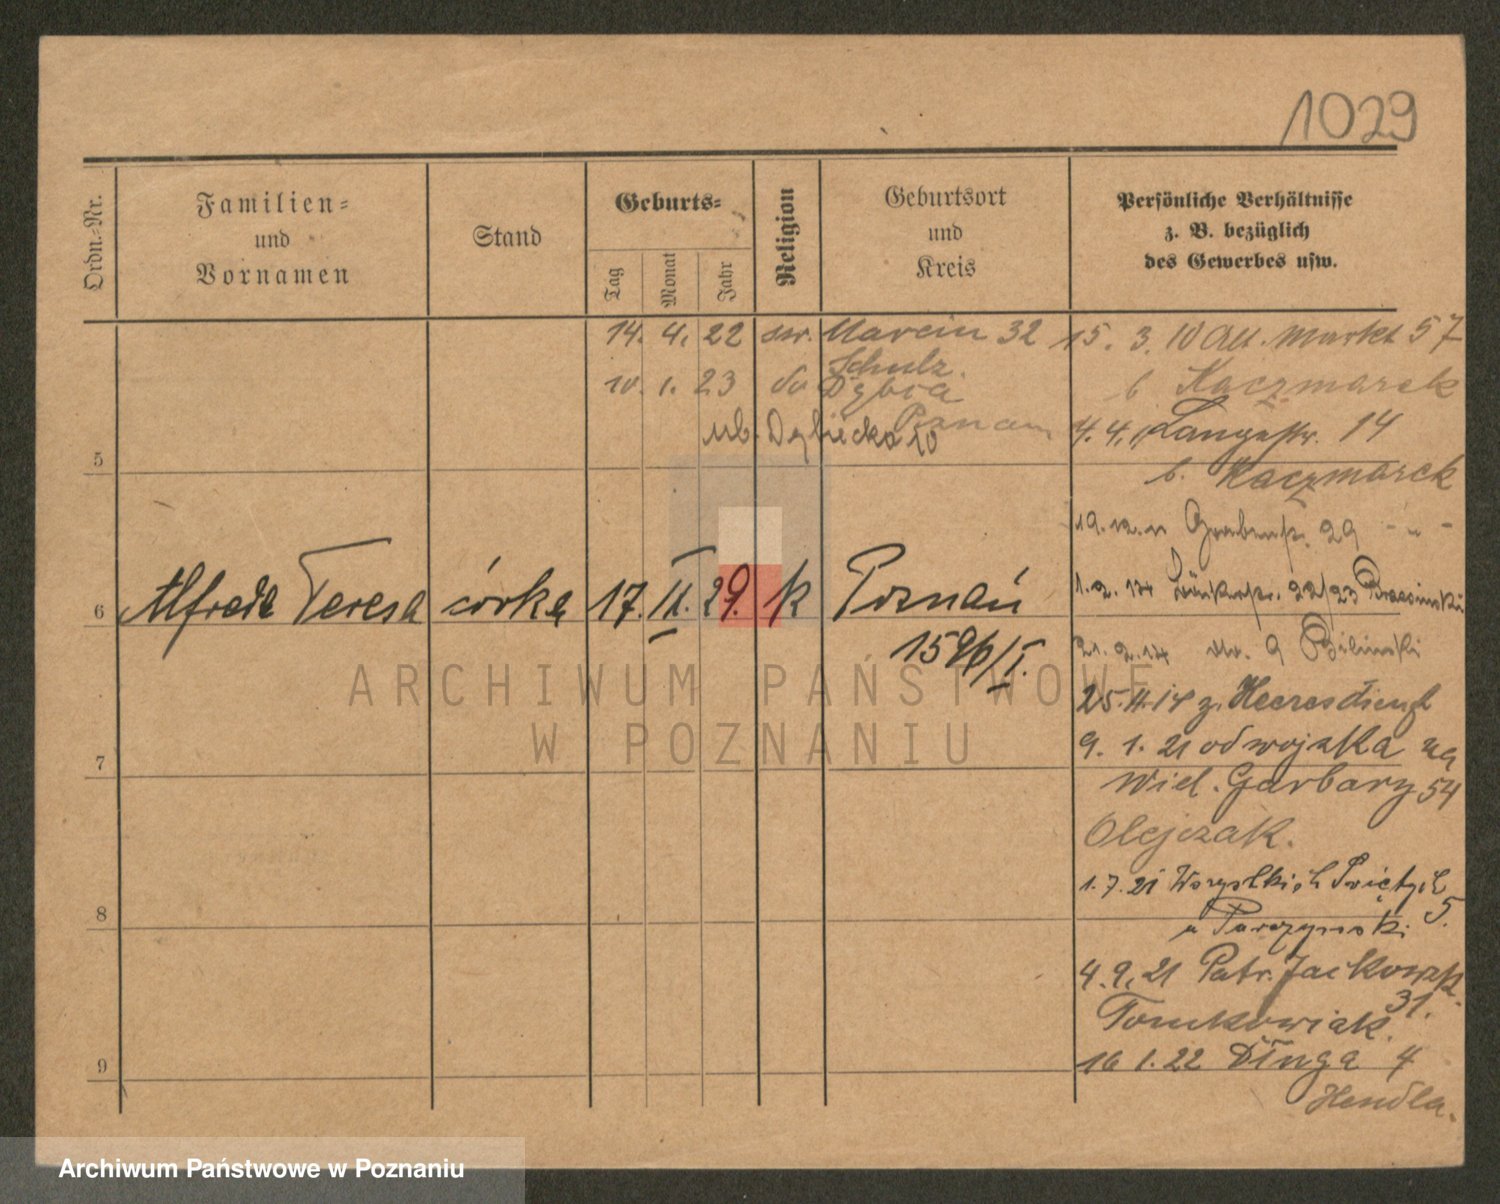 1029
Ordn.-Nr.
Familien-
und
Vornamen
Stand
Geburts-
Tag
Monat
Jahr
Religion
Geburtsort
und
Kreis
Persönliche Verhältnisse
z. B. bezüglich
des Gewerbes usw.
14. 4. 22 św. Marcin 32
Schulz.
10. 1. 23 do Dębca
Poznań
ub. Dębiecka 10
15. 3. 10 Alt. Markt 57
b Kaczmarek
4. 4. 11 Langestr. 14
b. Kaczmarek
5
19. 12. 11 Grabenstr. 29 - " -
6
Alfreda Teresa córka 17. II. 29. k Poznań
1596/I.
1. 2. 14 22/23
21. 2. 14 9 Biliński
25. 11. 14 z. Heeresdienst
9. 1. 21 od wojska na
Wiel. Garbary 54
Olejczak.
7
1. 7. 21 Wszystkich Świętych
5.
u
8
4. 9. 21 Patr. Jackowsk.
31.
Tomkowiak.
16 1. 22 Długa 4
Hendla.
9
ARCHIWUM PAŃSTWOWE
W POZNANIU
Archiwum Państwowe w Poznaniu